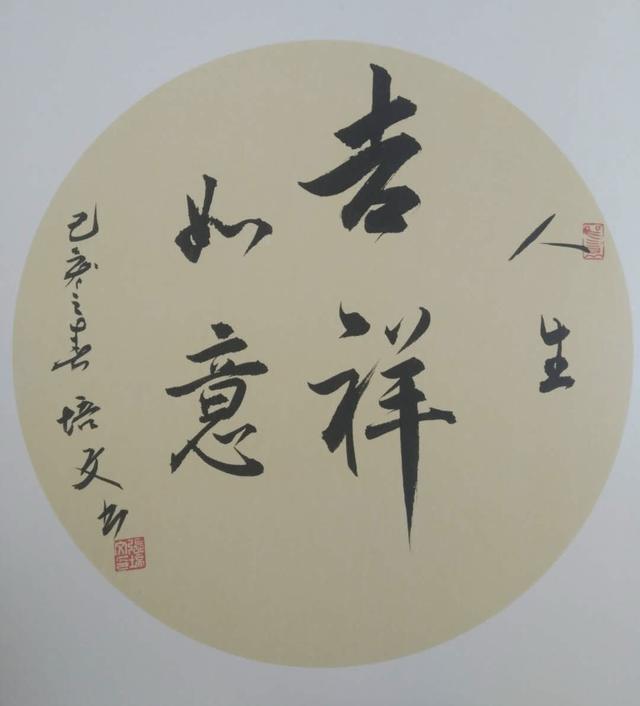 人生
吉祥
如意
己亥之春 培文书